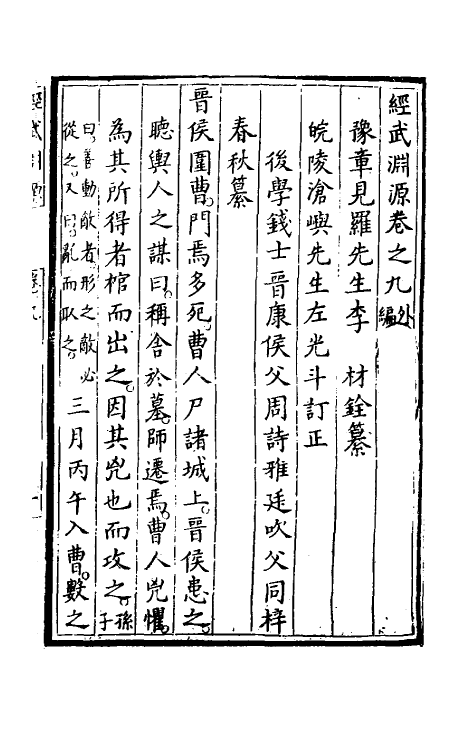 經武淵源卷之九外編
豫章見羅先生李 材銓纂
皖陵滄嶼先生左光斗訂正
後學錢士晉康侯父周詩雅廷吹父同梓
春秋纂
晉侯圍曹。門焉多死。曹人尸諸城上。晉侯患之。
聽輿人之謀曰。稱舍於墓。師遷焉。曹人兇懼。
為其所得者棺而出之。因其兇也而攻之。孫子
曰。善動敵者。形之敵必
從之。又曰。亂而取之。
三月丙午入曹。數之